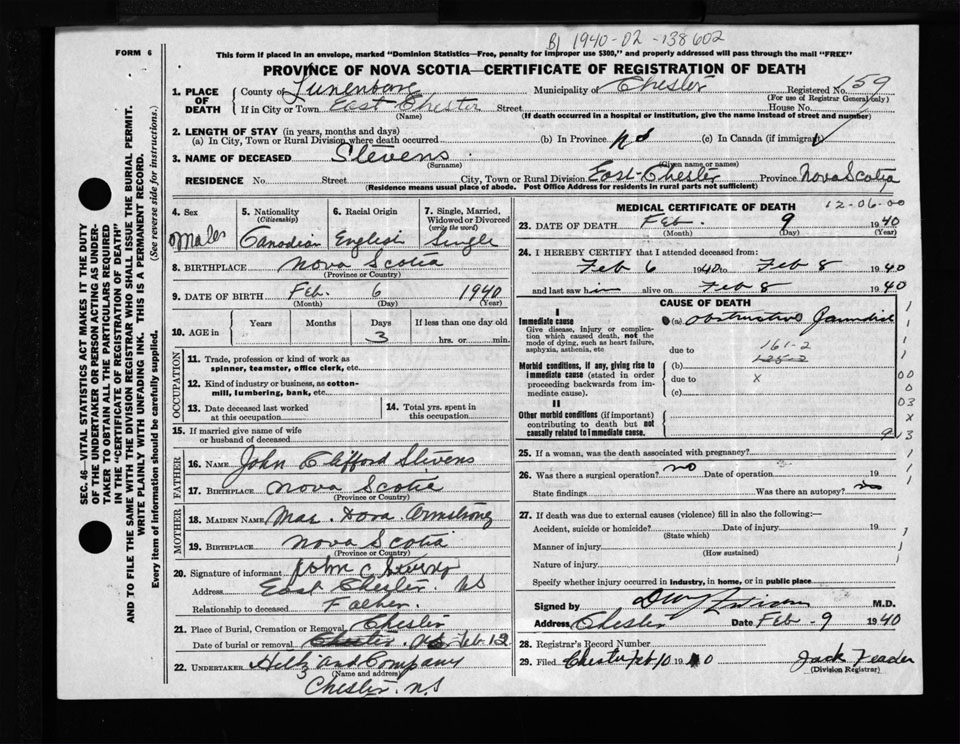 BJ 1940-02-138602
FORM 6
This form if placed in an envelope, marked "Dominion Statistics—Free, penalty for improper use $300," and properly addressed will pass through the mail "FREE"
PROVINCE OF NOVA SCOTIA—CERTIFICATE OF REGISTRATION OF DEATH
SEC. 46—VITAL STATISTICS ACT MAKES IT THE DUTY
OF THE UNDERTAKER OR PERSON ACTING AS UNDER-
TAKER TO OBTAIN ALL THE PARTICULARS REQUIRED
IN THE "CERTIFICATE OF REGISTRATION OF DEATH"
AND TO FILE THE SAME WITH THE DIVISION REGISTRAR WHO SHALL ISSUE THE BURIAL PERMIT.
WRITE PLAINLY WITH UNFADING INK. THIS IS A PERMANENT RECORD.
Every item of information should be carefully supplied. (See reverse side for instructions.)
1. PLACE OF DEATH County of Lunenburg Municipality of Chester Registered No. 159
(For use of Registrar General only)
If in City or Town East Chester Street House No.
(Name) (If death occurred in a hospital or institution, give the name instead of street and number)
2. LENGTH OF STAY (in years, months and days)
(a) In City, Town or Rural Division where death occurred (b) In Province (c) In Canada (if immigrant)
3. NAME OF DECEASED Stevens
(Surname) (Given name or names)
RESIDENCE No. Street City, Town or Rural Division East Chester Province Nova Scotia
(Residence means usual place of abode. Post Office Address for residents in rural parts not sufficient)
4. Sex Male
5. Nationality (Citizenship) Canadian
6. Racial Origin English
7. Single, Married, Widowed or Divorced (write the word) Single
8. BIRTHPLACE Nova Scotia
(Province or Country)
9. DATE OF BIRTH Feb. 6 1940
(Month) (Day) (Year)
10. AGE in Years Months Days 3 If less than one day old
hrs. or min.
OCCUPATION
11. Trade, profession or kind of work as
spinner, teamster, office clerk, etc.
12. Kind of industry or business, as cotton-
mill, lumbering, bank, etc.
13. Date deceased last worked
at this occupation
14. Total yrs. spent in
this occupation
15. If married give name of wife
or husband of deceased
FATHER
16. NAME John Clifford Stevens
17. BIRTHPLACE Nova Scotia
(Province or Country)
MOTHER
18. MAIDEN NAME Mae Dora Armstrong
19. BIRTHPLACE Nova Scotia
(Province or Country)
20. Signature of informant John C Stevens
Address East Chester NS
Relationship to deceased Father
21. Place of Burial, Cremation or Removal Chester
Date of burial or removal Chester NS Feb 12
22. UNDERTAKER Hiltz and Company
(Name and address)
3
Chester, NS
MEDICAL CERTIFICATE OF DEATH 12-06-00
23. DATE OF DEATH Feb. 9 1940
(Month) (Day) (Year)
24. I HEREBY CERTIFY that I attended deceased from:
Feb 6 1940 to Feb 8 1940
and last saw him alive on Feb 8 1940
CAUSE OF DEATH
I
Immediate cause
Give disease, injury or complica-
tion which caused death, not the
mode of dying, such as heart failure,
asphyxia, asthenia, etc
(a) obstructive Jaundice
due to 161-2
Morbid conditions, if any, giving rise to
immediate cause (stated in order
proceeding backwards from im-
mediate cause).
(b)
due to x
(c)
II
Other morbid conditions (if important)
contributing to death but not
causally related to immediate cause.
25. If a woman, was the death associated with pregnancy?
26. Was there a surgical operation? no Date of operation 19
State findings Was there an autopsy? no
27. If death was due to external causes (violence) fill in also the following:—
Accident, suicide or homicide? Date of injury 19
(State which)
Manner of injury
(How sustained)
Nature of injury
Specify whether injury occurred in industry, in home, or in public place
Signed by M.D.
Address Chester Date Feb - 9 1940
28. Registrar's Record Number
29. Filed Chester Feb 10 1940 Jack Feader
(Division Registrar)